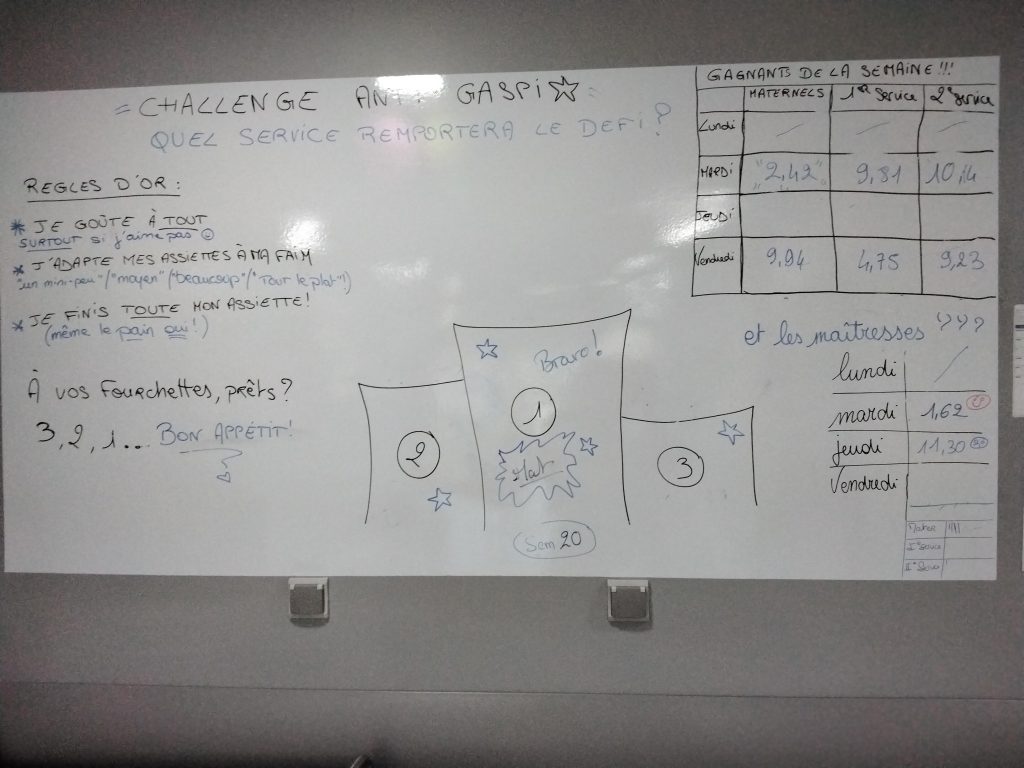 = CHALLENGE ANTI GASPI ☆ =
QUEL SERVICE REMPORTERA LE DEFI?
REGLES D'OR :
* JE GOÛTE À TOUT
SURTOUT si j'aime pas ☺
* J'ADAPTE MES ASSIETTES À MA FAIM
"un mini-peu"/"moyen"/"beaucoup"/"Tout le plat")
* JE FINIS TOUTE MON ASSIETTE!
(même le pain oui!)
À vos Fourchettes, prêts?
3, 2, 1... BON APPÉTIT!
GAGNANTS DE LA SEMAINE!!!
MATERNELS 1er Service 2e Service
Lundi / / /
MARDI "2,42" 9,81 10,14
JEUDI
Vendredi 9,94 4,75 9,23
et les maîtresses ???
lundi /
mardi 1,62
jeudi 11,30
Vendredi
Bravo!
1
2
Mat
3
Sem 20
Mater
1° Service
2° Serv